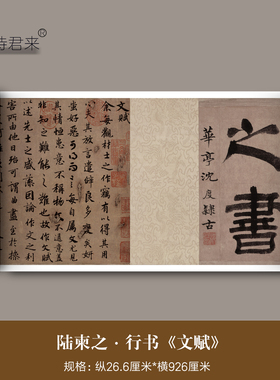 君来®
之書
華亭沈度隸古
文賦
余每觀材士之作竊有以得其用
心夫其放言遣辭良多變矣妍
蚩好惡可得而言每自屬文尤見
其情恒患意不稱物文不逮意蓋
非知之難能之難也故作文賦
以述先士之盛藻因論作文之利
害所由他日殆可謂曲盡至於操
陆柬之·行书《文赋》
规格：纵26.6厘米*横926厘米